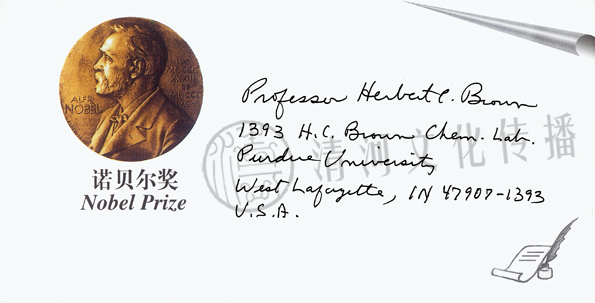 ALFR·
NOBEL
诺贝尔奖
Nobel Prize
Professor Herbert C. Brown
1393 H.C. Brown Chem. Lab.
Purdue University
West Lafayette, IN 47907-1393
U.S.A.
清河文化传播